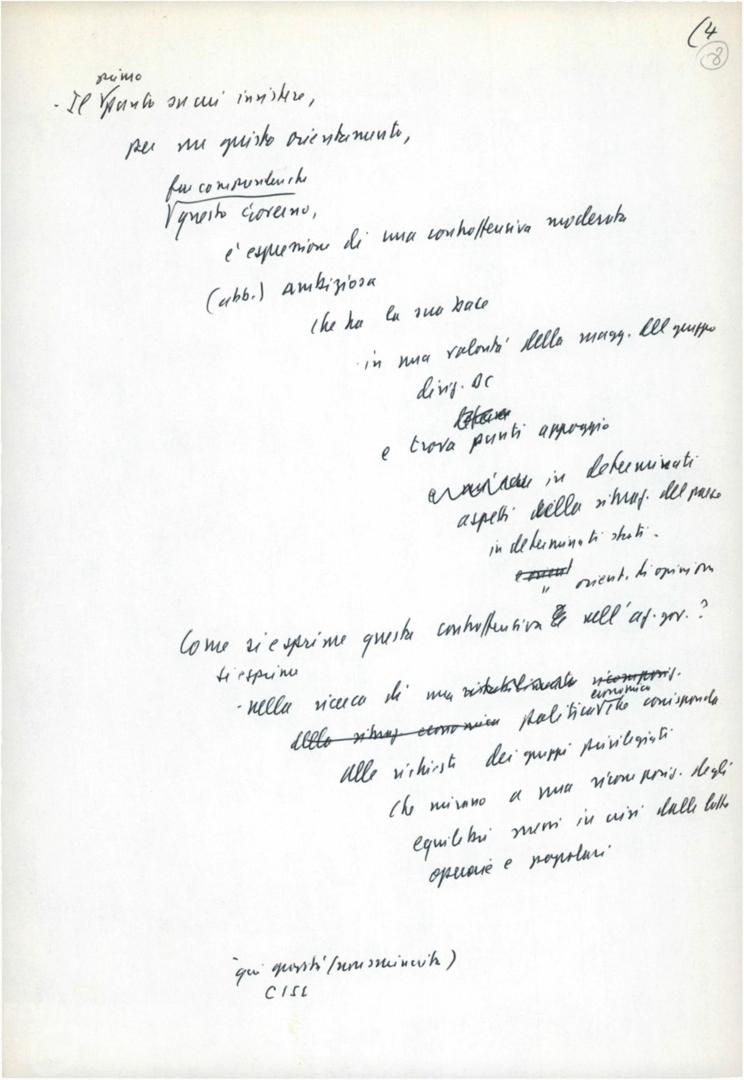 (4
8
primo
- Il punto su cui insistere,
per un giusto orientamento,
far comprendere che
questo Governo,
è espressione di una controffensiva moderata
(abb.) ambiziosa
che ha la sua base
in una volontà della magg. del gruppo
dirig. DC
e trova punti appoggio
in determinati
aspetti della situaz. del paese
in determinati strati.
" orient. di opinione
Come si esprime questa controffensiva nell'az. gov.?
si esprime
- nella ricerca di una
economica
politica che corrisponda
alle richieste dei gruppi privilegiati
che mirano a una ricompos. degli
equilibri messi in crisi dalle lotte
operaie e popolari
qui novità (non sminuita)
CISL